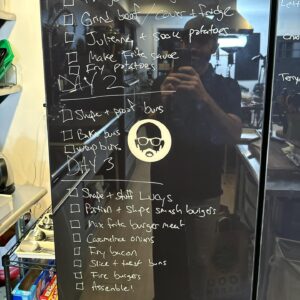 Grind beef / cover + fridge
Julienne + soak potatoes
Make Frita sauce
Fry potatoes
DAY 2
Shape + proof buns
Bake buns
wrap buns
DAY 3
Shape + stuff Lucys
Portion + shape smash burgers
Mix frita burger meat
Caramelize onions
Fry bacon
Slice + toast buns
Fire burgers
Assemble!